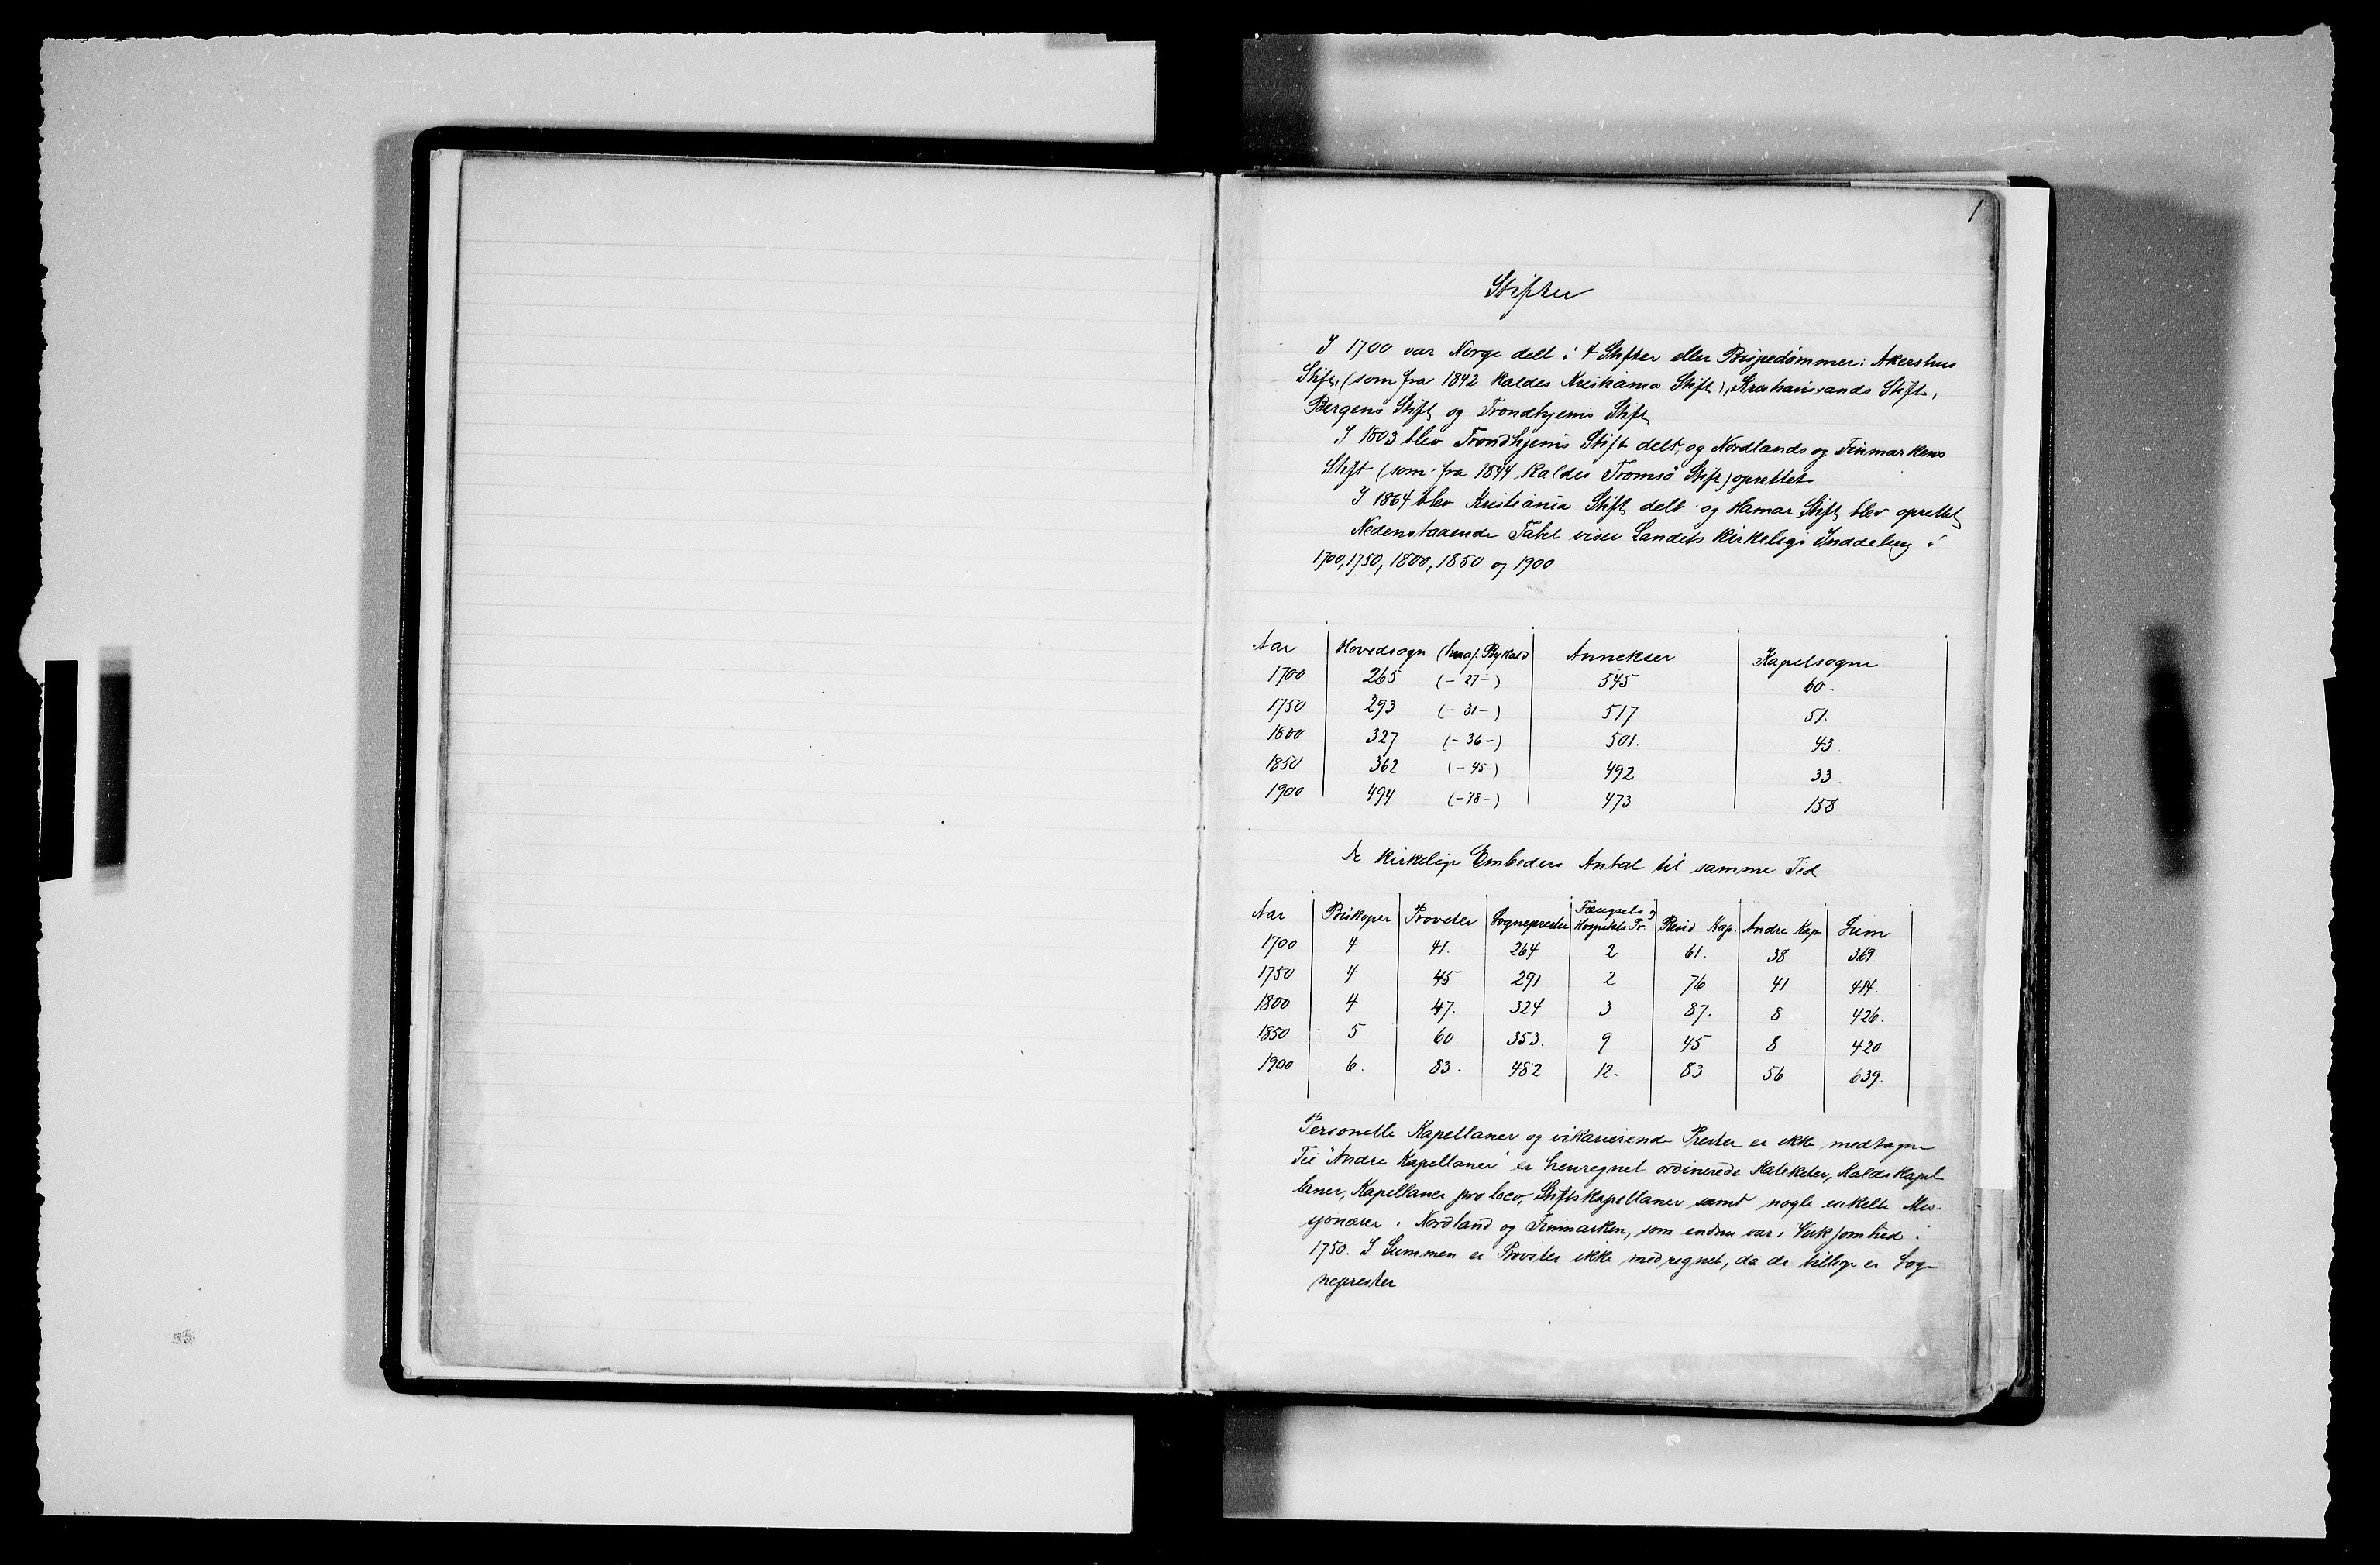 1
Stifter
I 1700 var Norge delt i 4 Stifter eller Bispedömmer: Akershus
Stift, (som fra 1842 kaldes Kristiania Stift), Kristianssands Stift,
Bergens Stift og Trondhjems Stift
I 1803 blev Trondhjems Stift delt, og Nordlands og Finmarkens
Stift (som fra 1844 kaldes Tromsö Stift) oprettet
I 1864 blev Kristiania Stift delt og Hamar Stift blev oprettet
Nedenstaaende Tabel viser Landets kirkelige Inddeling i
1700, 1750, 1800, 1850 og 1900
Aar Hovedsogn (hvoraf Bykald Annekser Kapelsogne
1700 265 (- 27 -) 545 60.
1750 293 (- 31 -) 517 51.
1800 327 (- 36 -) 501. 43.
1850 362 (- 45 -) 492 33.
1900 494 (- 78 -) 473 158
De kirkelige Embeders Antal til samme Tid
Aar Biskoper Provster Sogneprester Fængsels og Hospitals Pr. Resid Kap. Andre Kap Sum
1700 4 41. 264 2 61. 38 369.
1750 4 45 291 2 76 41 414.
1800 4 47. 324 3 87. 8 426.
1850 5 60. 353. 9 45 8 420
1900 6. 83. 482 12. 83 56 639.
Personelle Kapellaner og vikarierende Prester er ikke medtagne
Til "Andre Kapellaner" er henregnet ordinerede Kateketer, Kaldskapel
laner, Kapellaner pro loco, Stiftskapellaner samt nogle enkelte Mis-
sjonærer i Nordland og Finmarken, som endnu var i Virksomhed i
1750. I Summen er Provster ikke medregnet, da de tillige er Sog-
neprester